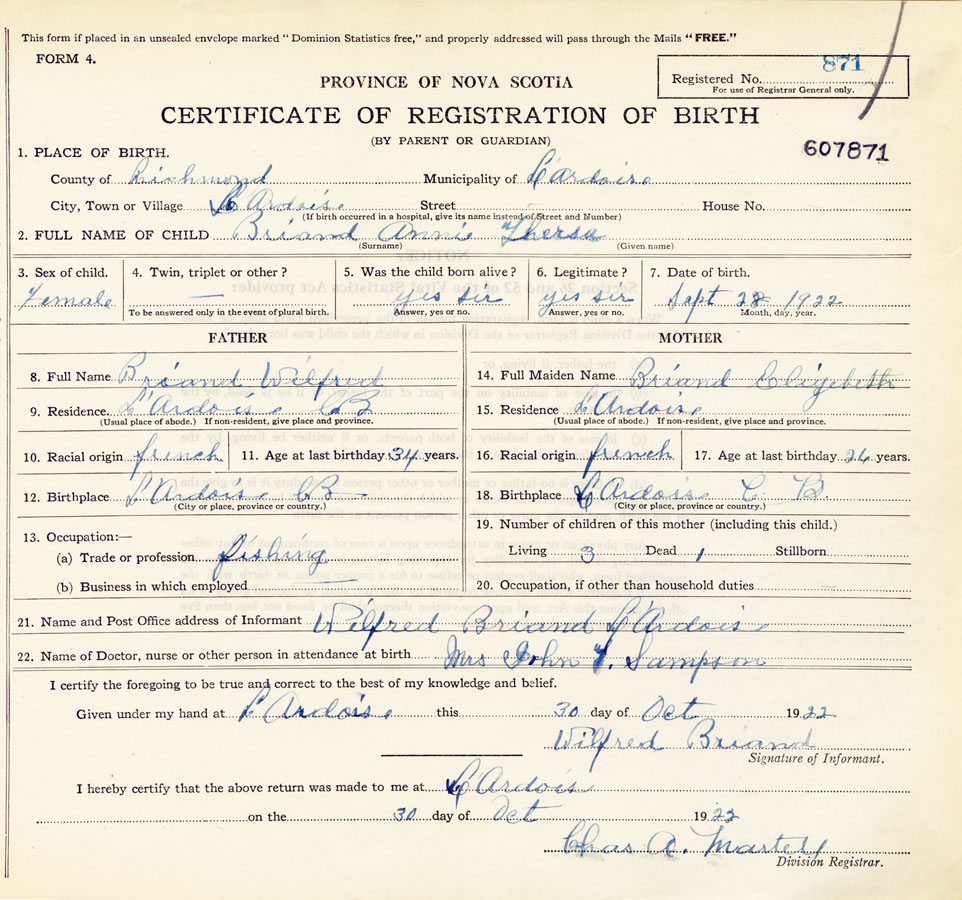 This form if placed in an unsealed envelope marked "Dominion Statistics free," and properly addressed will pass through the Mails "FREE."
FORM 4.
871
Registered No.
For use of Registrar General only.
PROVINCE OF NOVA SCOTIA
CERTIFICATE OF REGISTRATION OF BIRTH
(BY PARENT OR GUARDIAN)
607871
1. PLACE OF BIRTH.
County of Richmond Municipality of L'Ardoise
City, Town or Village L'Ardoise Street House No.
(If birth occurred in a hospital, give its name instead of Street and Number)
2. FULL NAME OF CHILD Briand Annie Thersa
(Surname) (Given name)
3. Sex of child. 4. Twin, triplet or other? 5. Was the child born alive? 6. Legitimate? 7. Date of birth.
Female — yes sir yes sir Sept 28 1922
To be answered only in the event of plural birth. Answer, yes or no. Answer, yes or no. Month, day, year.
FATHER MOTHER
8. Full Name Briand Wilfred 14. Full Maiden Name Briand Elizebeth
9. Residence. L'Ardoise CB 15. Residence L'Ardoise
(Usual place of abode.) If non-resident, give place and province. (Usual place of abode.) If non-resident, give place and province.
10. Racial origin french 11. Age at last birthday 34 years. 16. Racial origin french 17. Age at last birthday 26 years.
12. Birthplace L'Ardois CB 18. Birthplace L'Ardoise C B.
(City or place, province or country.) (City or place, province or country.)
19. Number of children of this mother (including this child.)
13. Occupation:—
(a) Trade or profession fishing Living 3 Dead 1 Stillborn
(b) Business in which employed — 20. Occupation, if other than household duties
21. Name and Post Office address of Informant Wilfred Briand L'Ardois
22. Name of Doctor, nurse or other person in attendance at birth Mrs John Sampson
I certify the foregoing to be true and correct to the best of my knowledge and belief.
Given under my hand at L'Ardoise this 30 day of Oct 1922
Wilfred Briand
Signature of Informant.
I hereby certify that the above return was made to me at L'Ardois
on the 30 day of Oct 1922
Chas A. Martell
Division Registrar.